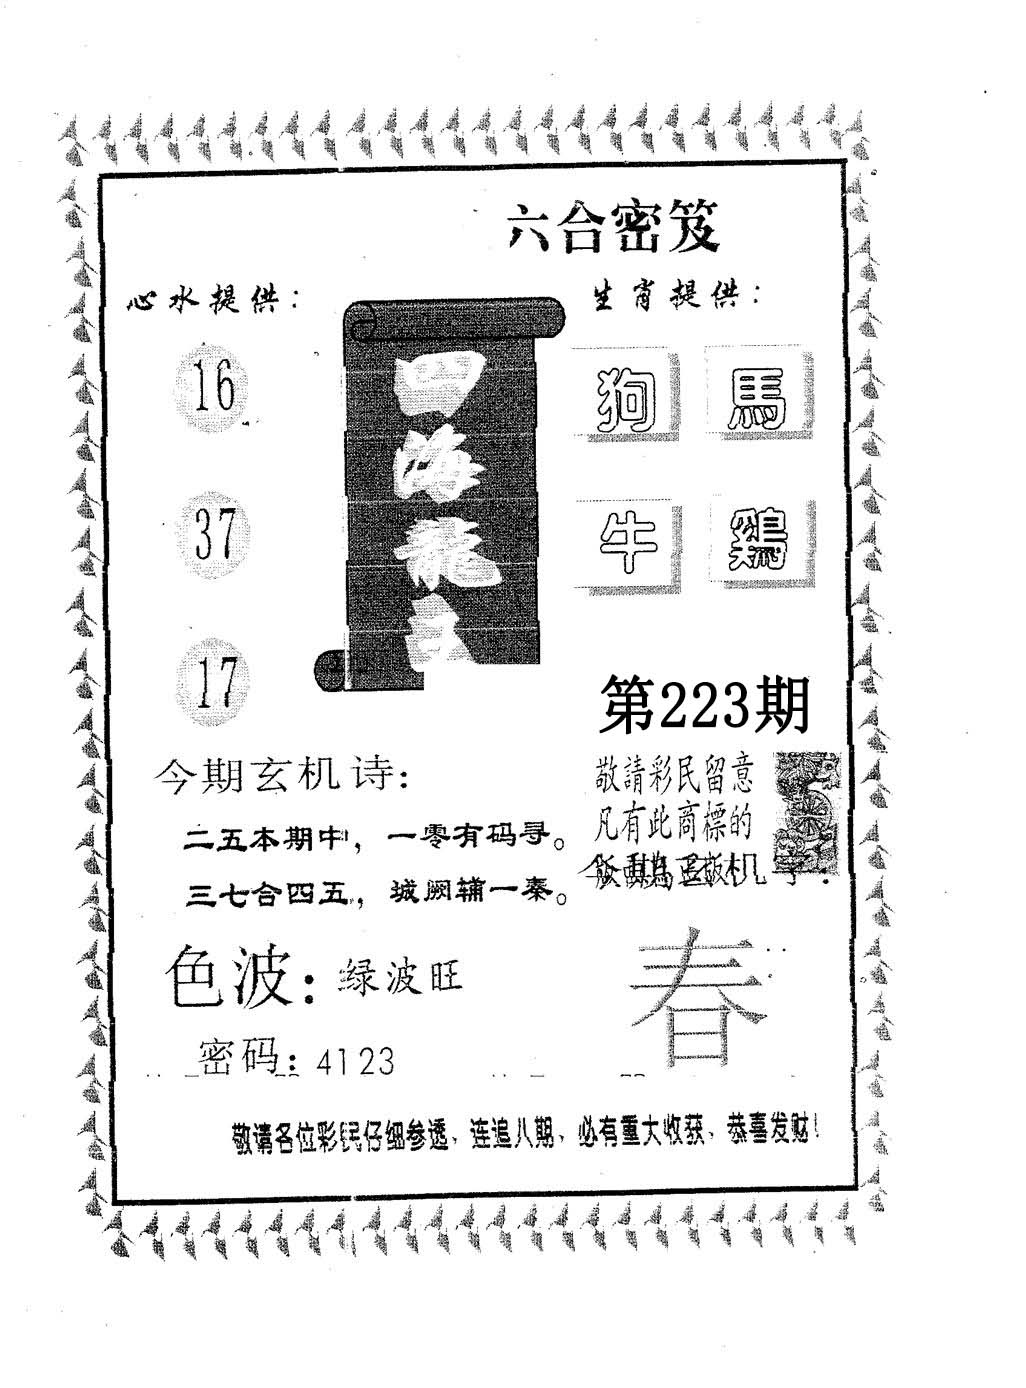 六合密笈
心水提供：
生肖提供：
16
37
17
四海龍
狗 馬
牛 鷄
第223期
今期玄机诗：
二五本期中，一零有码寻。
三七合四五，城阙辅一秦。
敬請彩民留意
凡有此商標的
色波：绿波旺
密码：4123
春
敬请各位彩民仔细参透、连追八期、必有重大收获、恭喜发财！